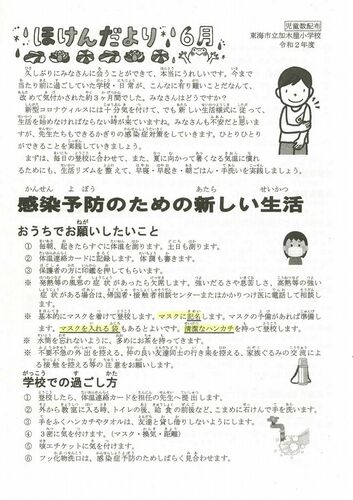 児童数配布
ほけんだより 6月
東海市立加木屋小学校
令和2年度
久しぶりにみなさんに会うことができて、本当にうれしいです。今まで
当たり前に過ごしていた学校・日常が、こんなに有り難いことだなんて、
改めて気付かされた約3ヶ月間でした。みなさんはどうですか?
新型コロナウィルスには十分気を付けて、でも新しい生活様式に従って、
生活を始めなければならない時が来ていますね。みなさんも不安だと思いま
すが、先生たちもできるかぎりの感染症対策をしていきます。ひとりひとりが
できることを実践していきましょう。
まずは、毎日の登校に合わせて、また、夏に向かって暑くなる気候に慣れ
るためにも、生活リズムを整えて、早寝・早起き・朝ごはん・手洗いを実践しましょう。
感染予防のための新しい生活
おうちでお願いしたいこと
① 毎朝、起きたらすぐに体温を測ります。土日も測ります。
② 体温連絡カードに記録します。体調も書きます。
③ 保護者の方に印鑑を押してもらいます。
※ 発熱等の風邪の症状があったら欠席します。強いだるさや息苦しさ、高熱等の強い
症状がある場合は、帰国者・接触者相談センターまたはかかりつけ医に電話して相談し
ます。
※ 基本的にマスクを着けて登校します。マスクに記名します。マスクの予備があれば準備し
ます。マスクを入れる袋もあるとよいです。清潔なハンカチを持って登校します。
※ 水筒を忘れないように、多めにお茶を持ってきます。
※ 不要不急の外出を控える、仲の良い友達同士の行き来を控える、家族ぐるみの交流によ
る接触を控える等の注意をお願いします。
学校での過ごし方
① 登校したら、体温連絡カードを担任の先生へ提出します。
② 外から教室に入る時、トイレの後、給食の前後など、こまめに石けんで手を洗います。
③ 手をふくハンカチやタオルは、友達と貸し借りしないようにします。
④ 3密に気を付けます。(マスク・換気・距離)
⑤ 咳エチケットに気を付けます。
⑥ フッ化物洗口は、感染症予防のためしばらく見合わせます。